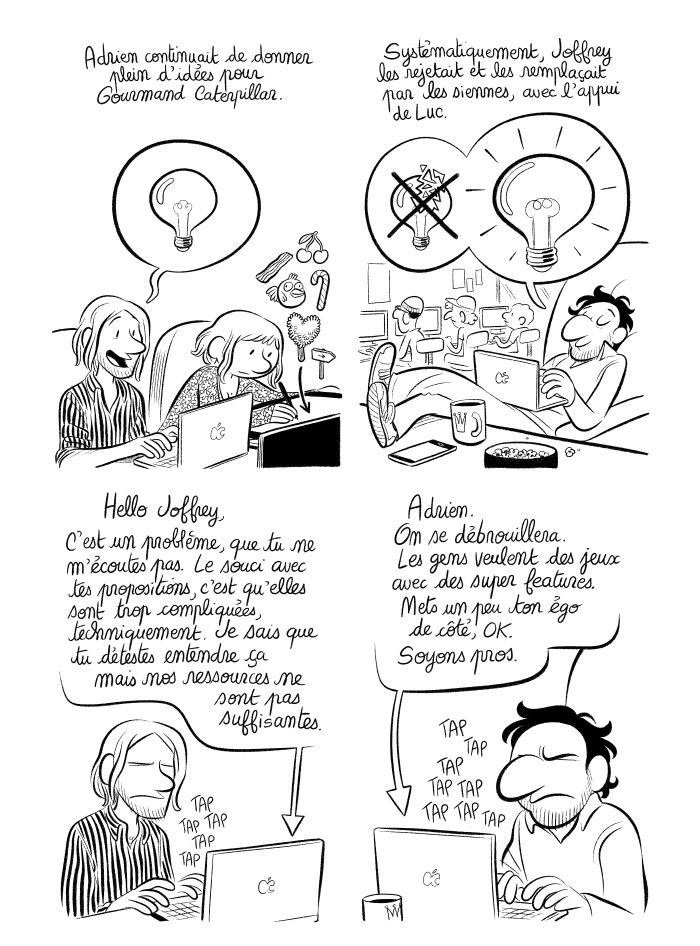 Adrien continuait de donner
plein d'idées pour
Gourmand Caterpillar.
Systématiquement, Joffrey
les rejetait et les remplaçait
par les siennes, avec l'appui
de Luc.
Hello Joffrey,
C'est un problème, que tu ne
m'écoutes pas. Le souci avec
tes propositions, c'est qu'elles
sont trop compliquées,
techniquement. Je sais que
tu détestes entendre ça
mais nos ressources ne
sont pas
suffisantes.
TAP
TAP TAP
TAP
TAP
Adrien.
On se débrouillera.
Les gens veulent des jeux
avec des super features.
Mets un peu ton égo
de côté, OK.
Soyons pros.
TAP
TAP
TAP
TAP TAP
TAP TAP TAP